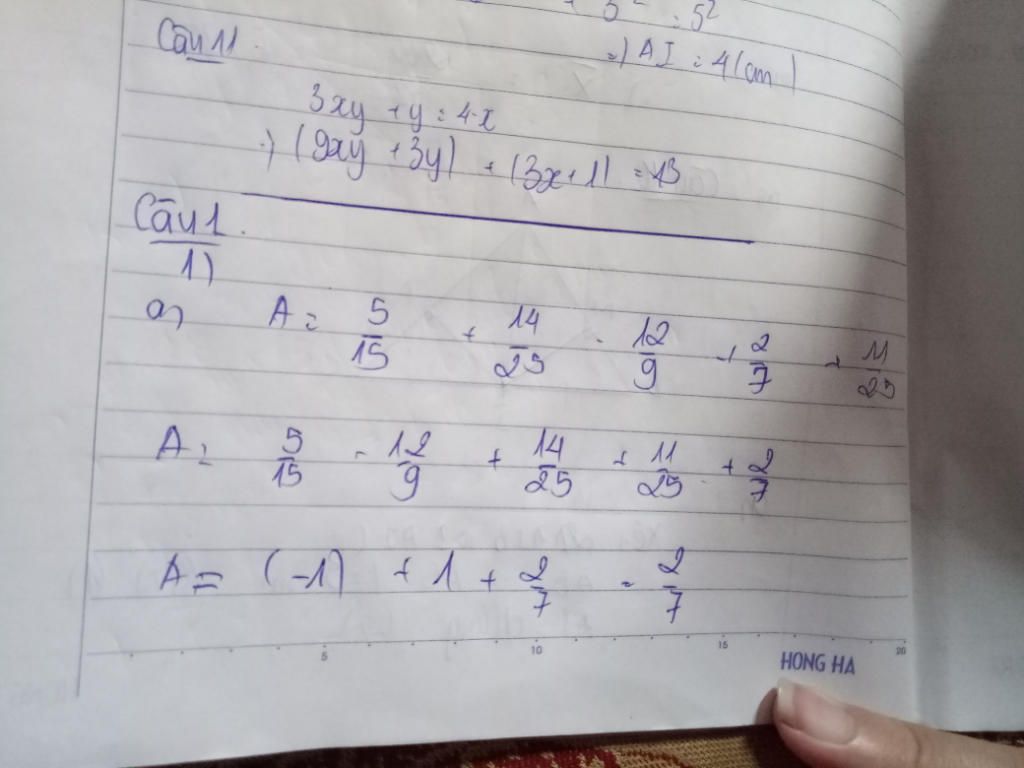 5² : 5²
=) AI = 4 (cm)
Câu 11.
3xy + y = 4 - x
=) (9xy + 3y) + (3x + 1) = 13
Câu 1.
1)
a, A = 5/15 + 14/25 - 12/9 + 2/7 + 11/25
A = 5/15 - 12/9 + 14/25 + 11/25 + 2/7
A = (-1) + 1 + 2/7 = 2/7
5 10 15 20
HONG HA